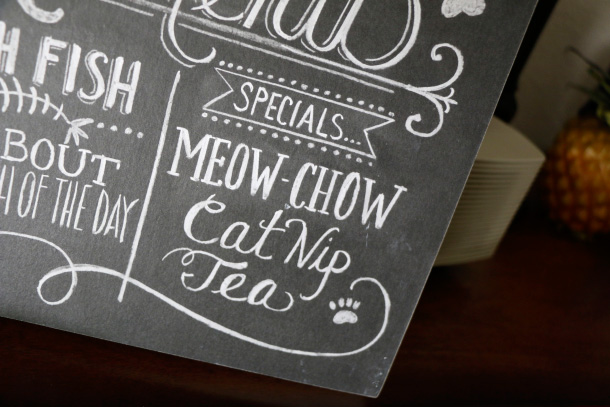 FISH
BOUT
OF THE DAY
SPECIALS...
MEOW-CHOW
Cat Nip
Tea